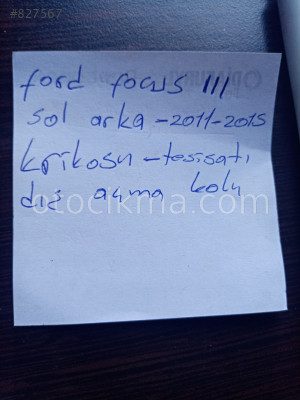 #827567
ford focus III
sol arka - 2011-2015
krikosu - tesisatı
otocikma.com
dış açma kolu